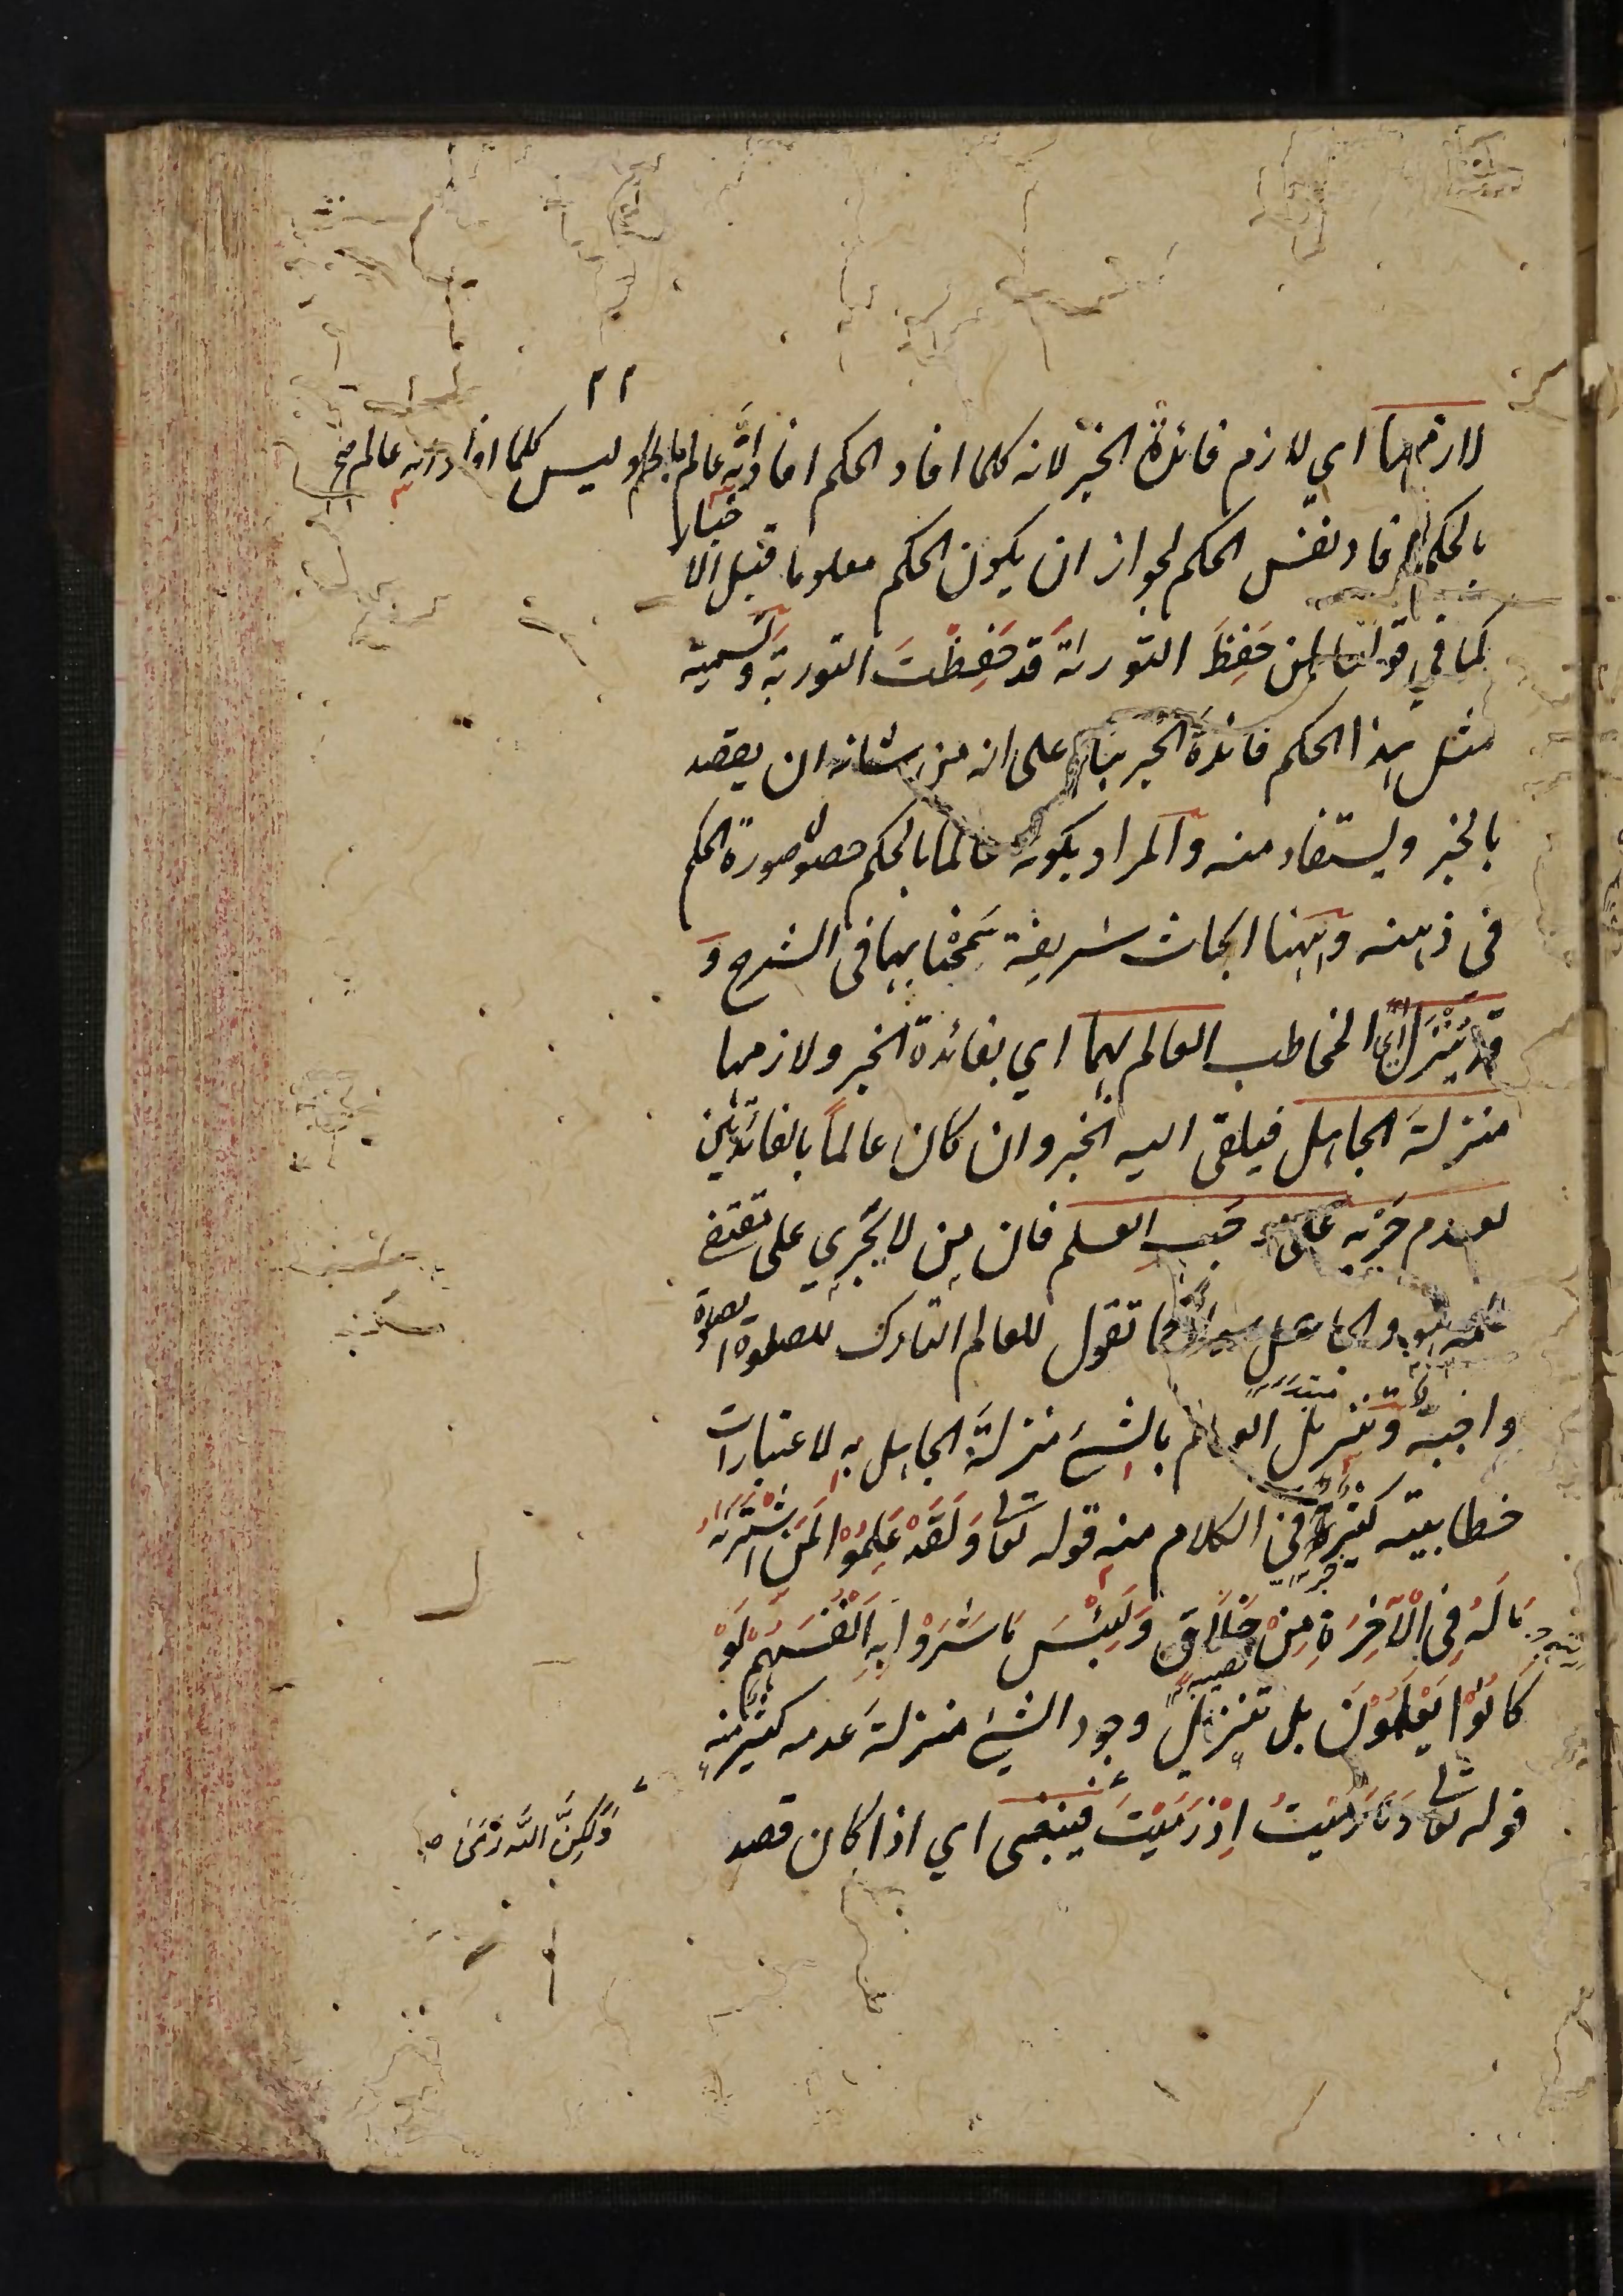 لازمها اي لازم فائدة الخبر لانه كلما افاد الحكم افاد انه عالم بالحكم وليس كلما افاد انه عالم صح
بالحكم افاد نفس الحكم لجواز ان يكون الحكم معلوما قبل الاخبار
كما في قولنا لمن حَفِظَ التورىة قد حَفِظْتَ التورية وتسمية
مثل هذا الحكم فائدة الخبر بناء على انه من شانه ان يقصد
بالخبر ويستفاد منه والمراد بكونه عالما بالحكم حصول صورة الحكم
في ذهنه وههنا ابحاث شريفة سمحنا بها في الشرح و
قد يُنَزَّل المخاطب العالم بهما اي بفائدة الخبر ولازمها
منزلة الجاهل فيلقى اليه الخبر وان كان عالماً بالفائدتين
لعدم جَرْيِه على موجَبِ العلم فان من لا يَجْرِي على مقتضى
علمه هو والجاهل سواء كما تقول للعالم التارك للصلوة الصلوة
واجبة وتنزيل العالم بالشئ منزلة الجاهل به لاعتبارات
خطابية كثيرة في الكلام منه قوله تعا وَلَقَدْ عَلِمُوْا لَمَنِ اشْتَرَىٰهُ
مَا لَهُ فِي الْآخِرَةِ مِنْ خَلَاقٍ وَلَبِئْسَ مَا شَرَوْا بِهِ اَنْفُسَهُمْ لَوْ
كَانُوْا يَعْلَمُوْنَ بل تنزيل وجود الشئ منزلة عدمه كثير منه
قوله تعا وَمَا رَمَيْتَ اِذْ رَمَيْتَ فينبغي اي اذا كان قصد
وَلَكِنَّ اللّٰهَ رَمَى صح